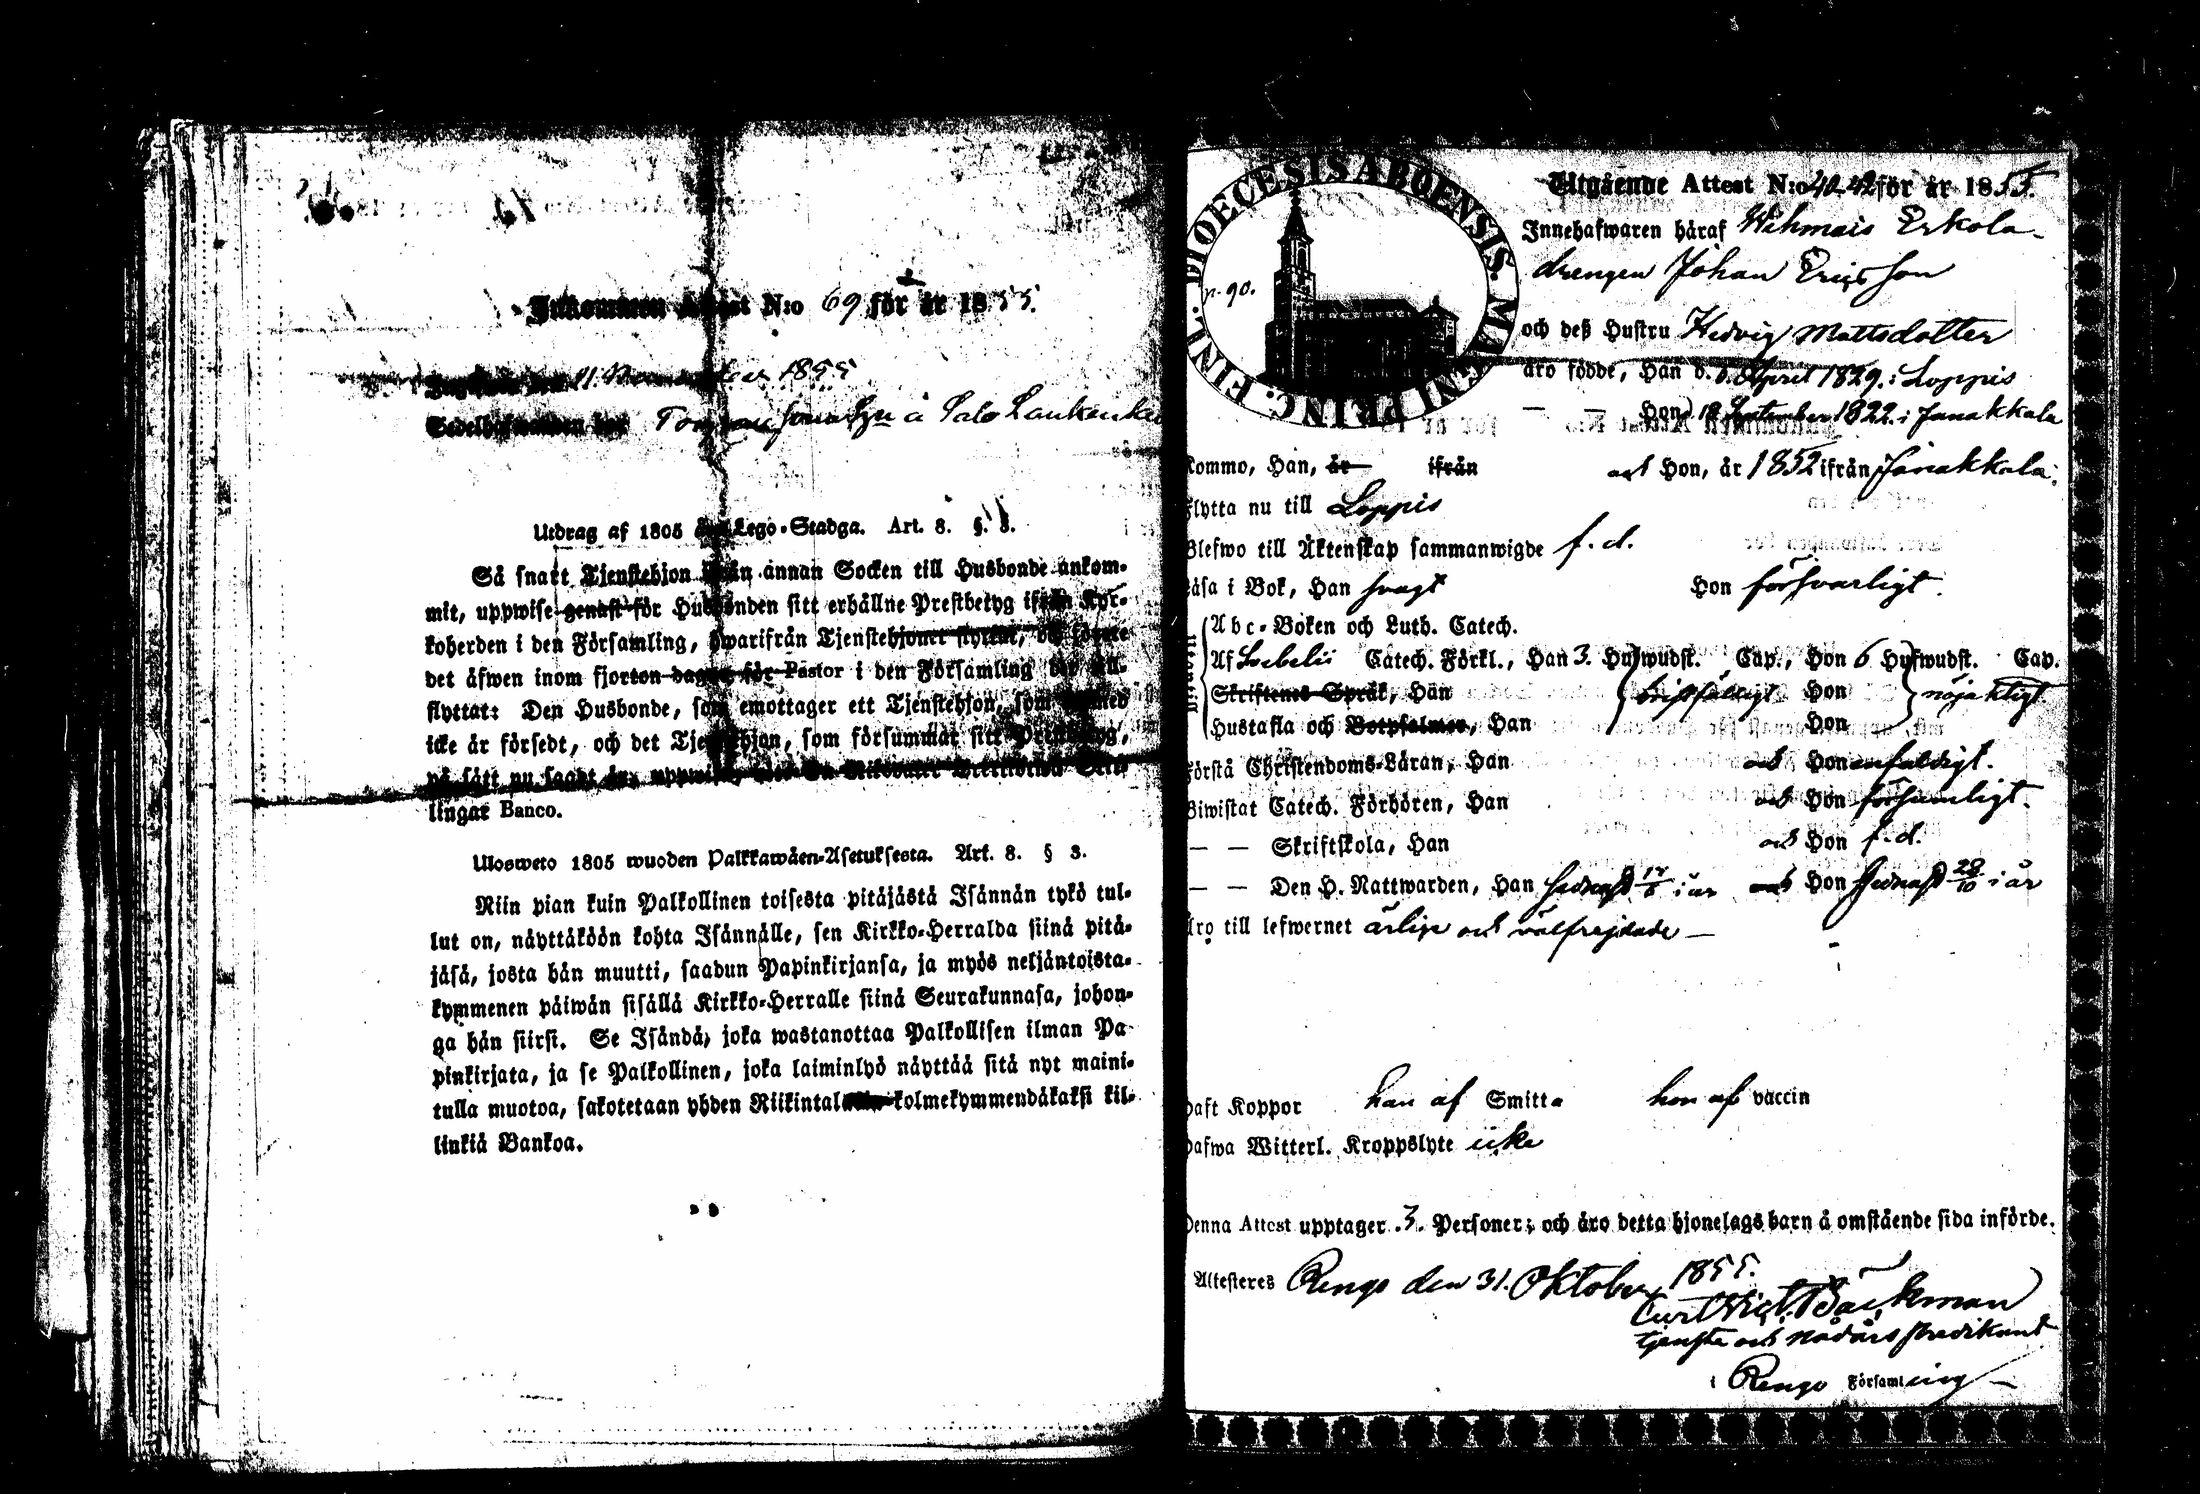 Inkommen Attest N:o 69 för år 1855.
11 1855
Sedelhafwanden hos å Salo Laukenka
Utdrag af 1805 års Lego-Stadga. Art. 8. §. 3.
Så snart Tjenstehjon ifrån annan Socken till Husbonde ankom-
mit, uppwise genast för Husbonden sitt erhållne Prestbetyg ifrån Kyr-
koherden i den Församling, hwarifrån Tjenstehjonet flyttat, och förete
det äfwen inom fjorton dagar för Pastor i den Församling
flyttat: Den Husbonde, som emottager ett Tjenstehjon, som
icke är försedt, och det Tjenstehjon, som försummar sitt Prestbetyg,
på sätt nu sagdt är, uppwisa,
lingar Banco.
Ulosweto 1805 wuoden Palkkawäen-Asetuksesta. Art. 8. § 3.
Niin pian kuin Palkollinen toisesta pitäjästä Isännän tykö tul-
lut on, näyttäköön kohta Isännälle, sen Kirkko-Herralda siinä pitä-
jäsä, josta hän muutti, saadun Papinkirjansa, ja myös neljäntoista-
kymmenen päiwän sisällä Kirkko-Herralle siinä Seurakunnasa, johon-
ga hän siirsi. Se Isändä, joka wastanottaa Palkollisen ilman Pa-
pinkirjata, ja se Palkollinen, joka laiminlyö näyttää sitä nyt maini-
tulla muotoa, sakotetaan yhden Riikintalarin kolmekymmendäkaksi kil-
linkiä Bankoa.
DIOECESIS ABOENSIS. MAGNI PRINC. FINL.
p. 90.
Utgående Attest N:o 40-42 för år 1855.
Innehafwaren häraf Wehmais Erkola
drengen Johan Ericsson
och deß Hustru Hedvig Mattsdotter
äro födde, Han d. 6. April 1829. i Loppis
— — Hon d 18 September 1822. i Janakkala
Kommo, Han, år ifrån och Hon, år 1852 ifrån Janakkala.
Flytta nu till Loppis
Blefwo till Äktenskap sammanwigde f. d.
Läsa i Bok, Han svagt Hon försvarligt.
Abc-Boken och Luth. Catech.
Af Svebelii Catech. Förkl., Han 3. Hufwudst. Cap., Hon 6 Hufwudst. Cap.
Skriftenes Språk, Han bristfälligt Hon nöjaktigt
Hustafla och Botpsalmer, Han Hon
Förstå Christendoms-Läran, Han och Hon enfaldigt.
Biwistat Catech. Förhören, Han och Hon försumligt.
— — Skriftskola, Han och Hon f. d.
— — Den H. Nattwarden, Han sednast 17/6 i år och Hon sednast 28/10 i år
Äro till lefwernet ärlige och välfrejdade —
Haft Koppor han af Smitta hon af vaccin
Hafwa Witterl. Kroppslyte icke
Denna Attest upptager 3. Personer; och äro detta hjonelags barn å omstående sida införde.
Attesteres Rengo den 31. Oktober 1855.
Curt Bäckman
tjenste och Nådårs predikant
i Rengo Församling —